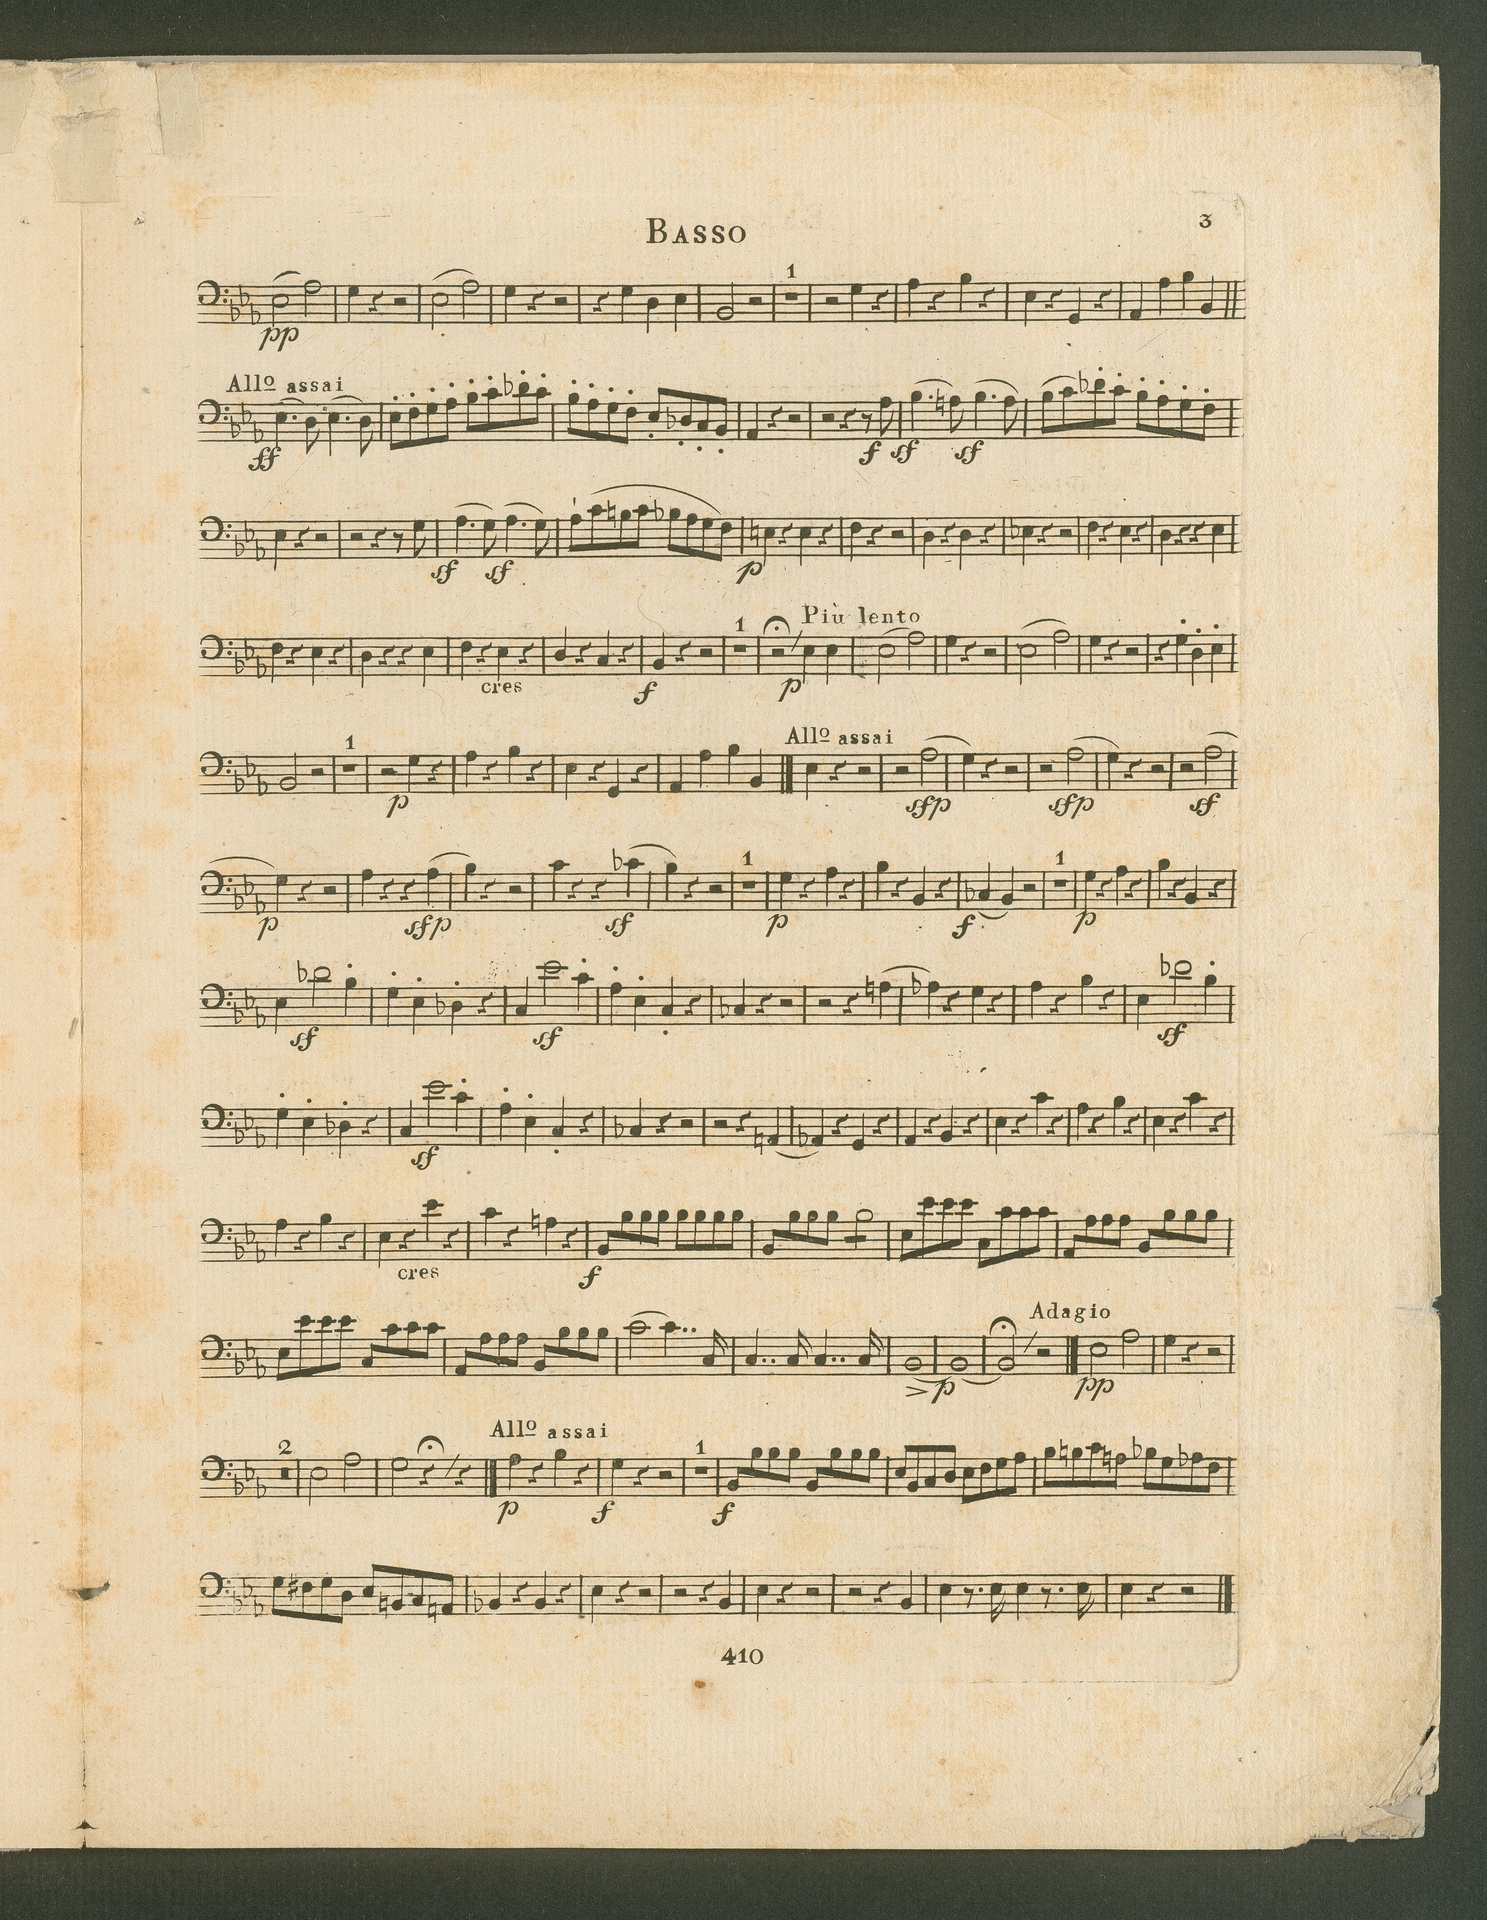 BASSO
3
1
pp
Allo assai
ff f sf sf
sf sf p
1 Più lento
cres f p
1 Allo assai
p sfp sfp sf
1 1
p sfp sf p f p
sf sf sf
sf
cres f
Adagio
> p pp
2 Allo assai 1
p f f
410